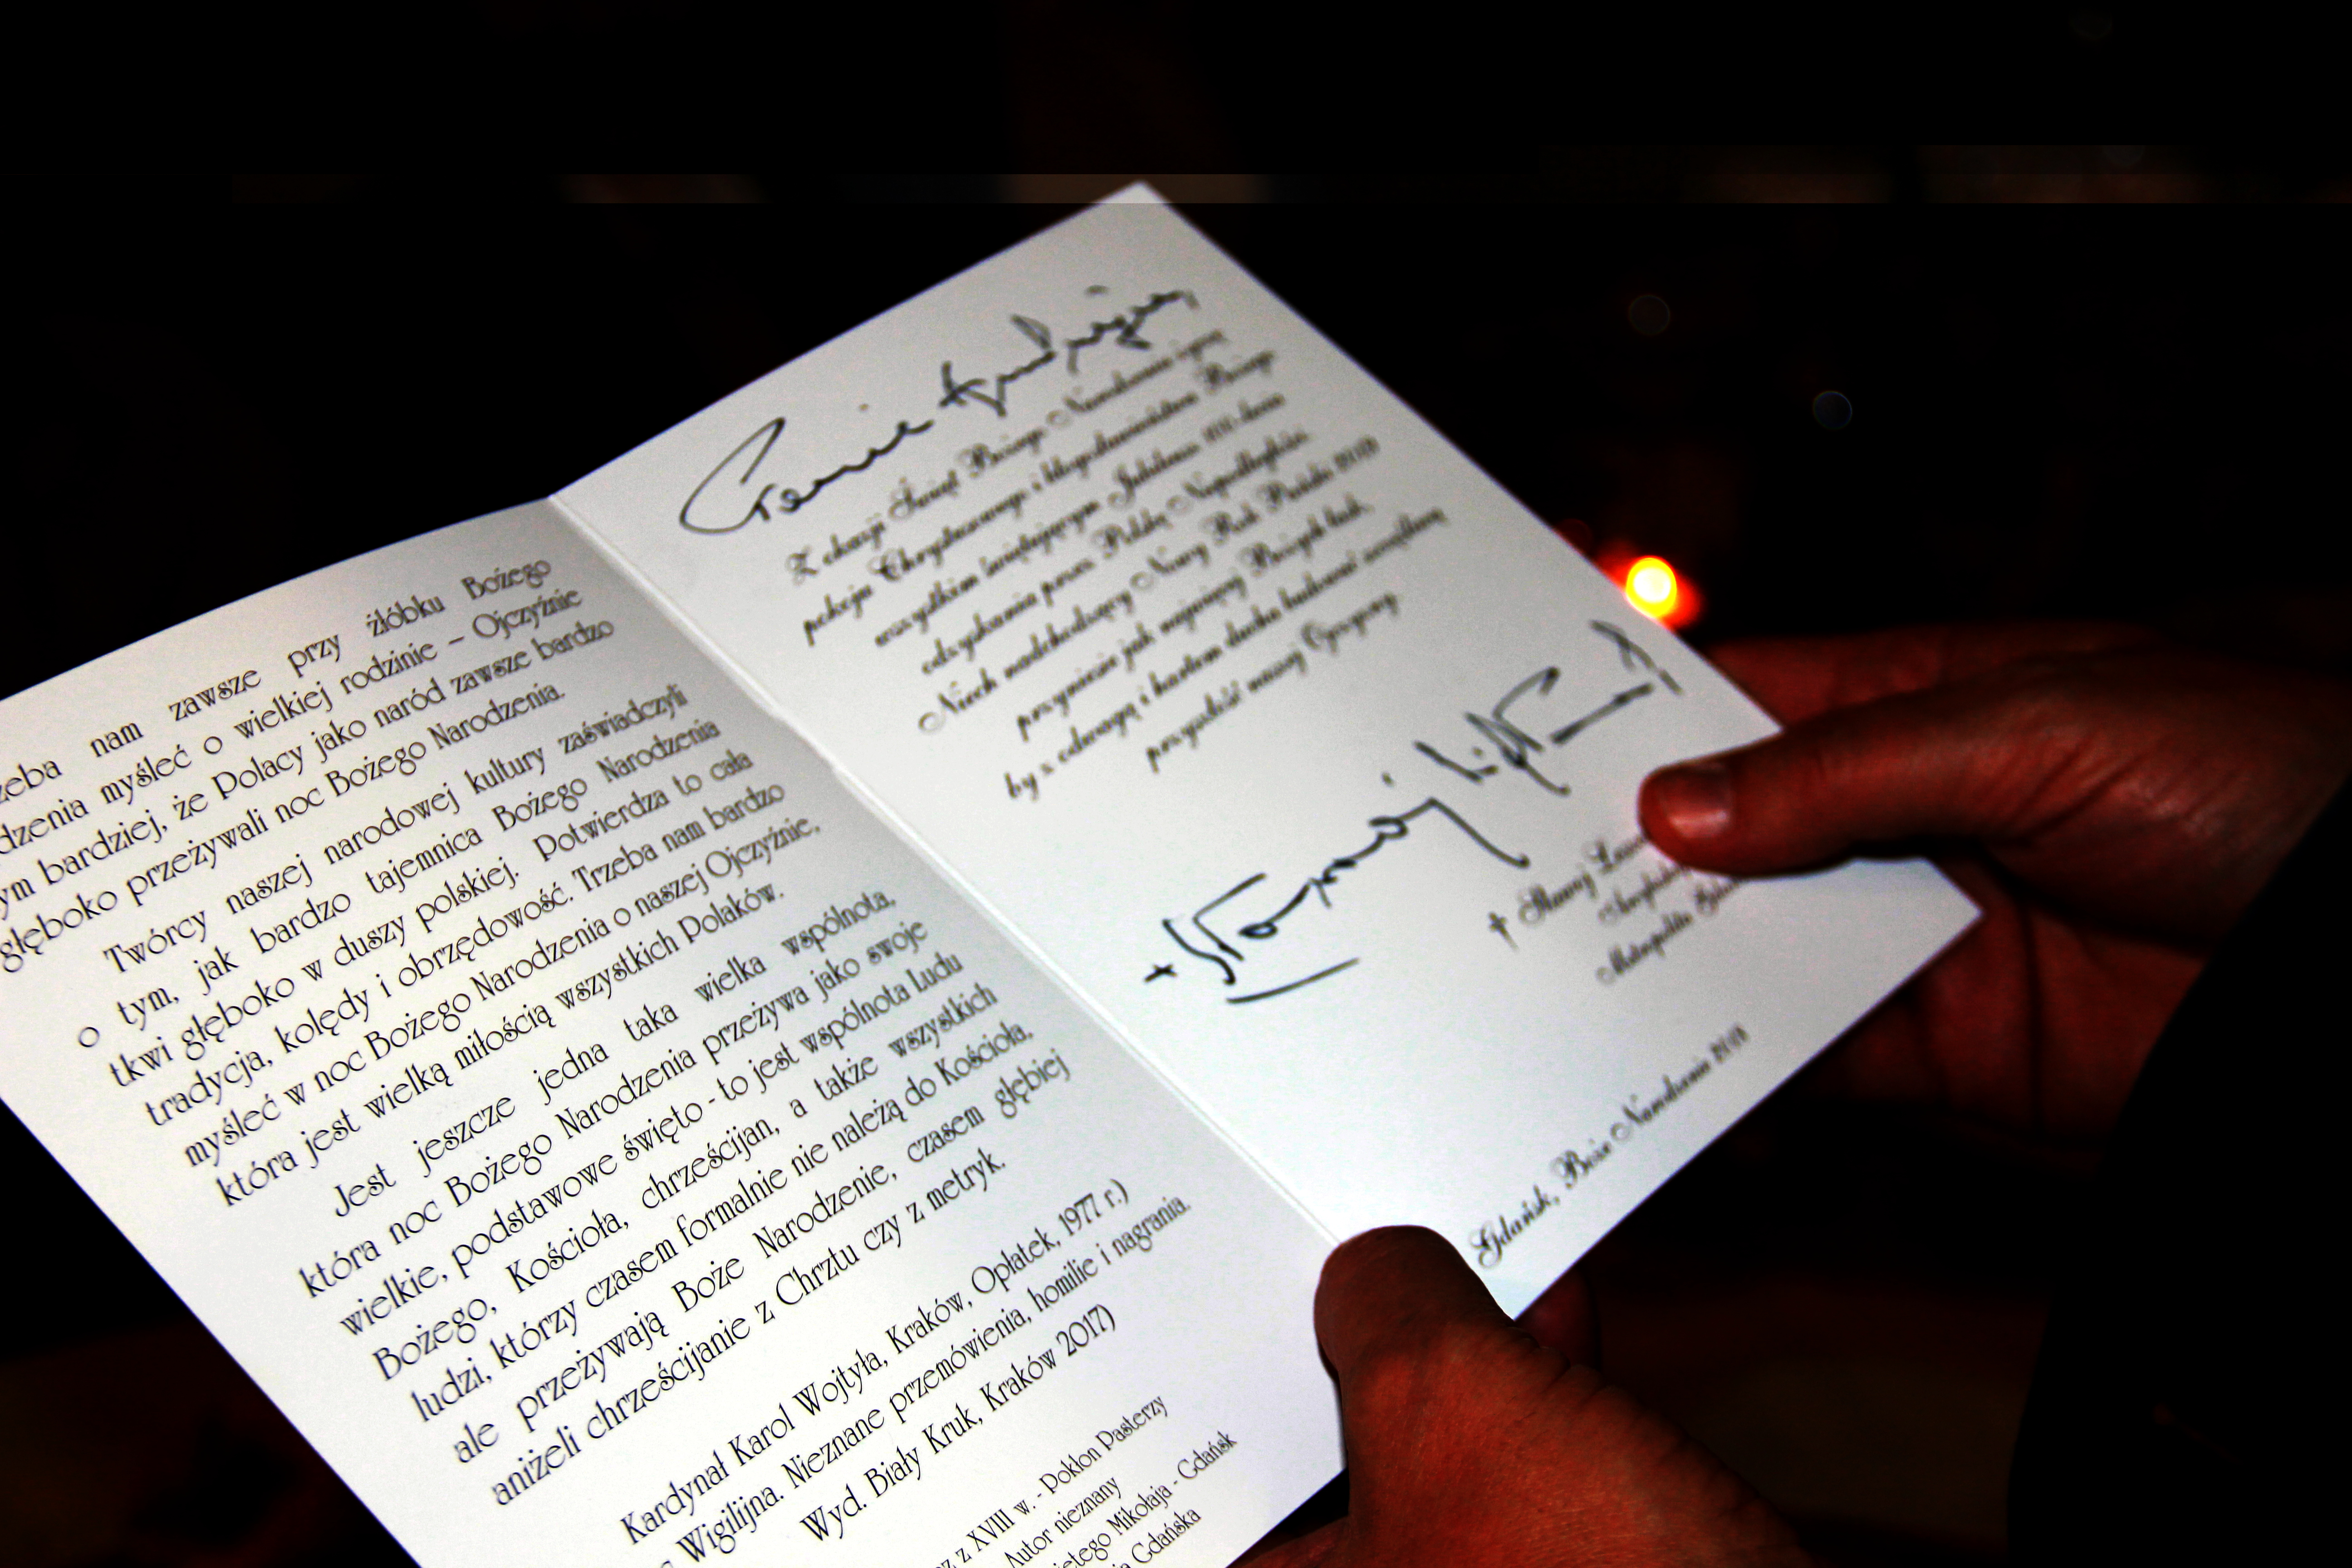 zeba nam zawsze przy żłóbku Bożego
dzenia myśleć o wielkiej rodzinie – Ojczyźnie
ym bardziej, że Polacy jako naród zawsze bardzo
głęboko przeżywali noc Bożego Narodzenia.
Twórcy naszej narodowej kultury zaświadczyli
o tym, jak bardzo tajemnica Bożego Narodzenia
tkwi głęboko w duszy polskiej. Potwierdza to cała
tradycja, kolędy i obrzędowość. Trzeba nam bardzo
myśleć w noc Bożego Narodzenia o naszej Ojczyźnie,
która jest wielką miłością wszystkich Polaków.
Jest jeszcze jedna taka wielka wspólnota,
która noc Bożego Narodzenia przeżywa jako swoje
wielkie, podstawowe święto - to jest wspólnota Ludu
Bożego, Kościoła, chrześcijan, a także wszystkich
ludzi, którzy czasem formalnie nie należą do Kościoła,
ale przeżywają Boże Narodzenie, czasem głębiej
aniżeli chrześcijanie z Chrztu czy z metryk.
Kardynał Karol Wojtyła, Kraków, Opłatek, 1977 r.)
Wigilijna. Nieznane przemówienia, homilie i nagrania.
Wyd. Biały Kruk, Kraków 2017)
z XVIII w. - Pokłon Pasterzy
Autor nieznany
Mikołaja - Gdańsk
Gdańska
Z okazji Świąt Bożego Narodzenia życzę
pokoju Chrystusowego i błogosławieństwa Bożego
wszystkim świętującym Jubileusz 100-lecia
odzyskania przez Polskę Niepodległości.
Niech nadchodzący Nowy Rok Pański 2018
przyniesie jak najwięcej Bożych łask,
by z odwagą i hartem ducha budować szczęśliwą
przyszłość naszej Ojczyzny.
† Sławoj
Metropolita
Gdańsk, Boże Narodzenie 2018